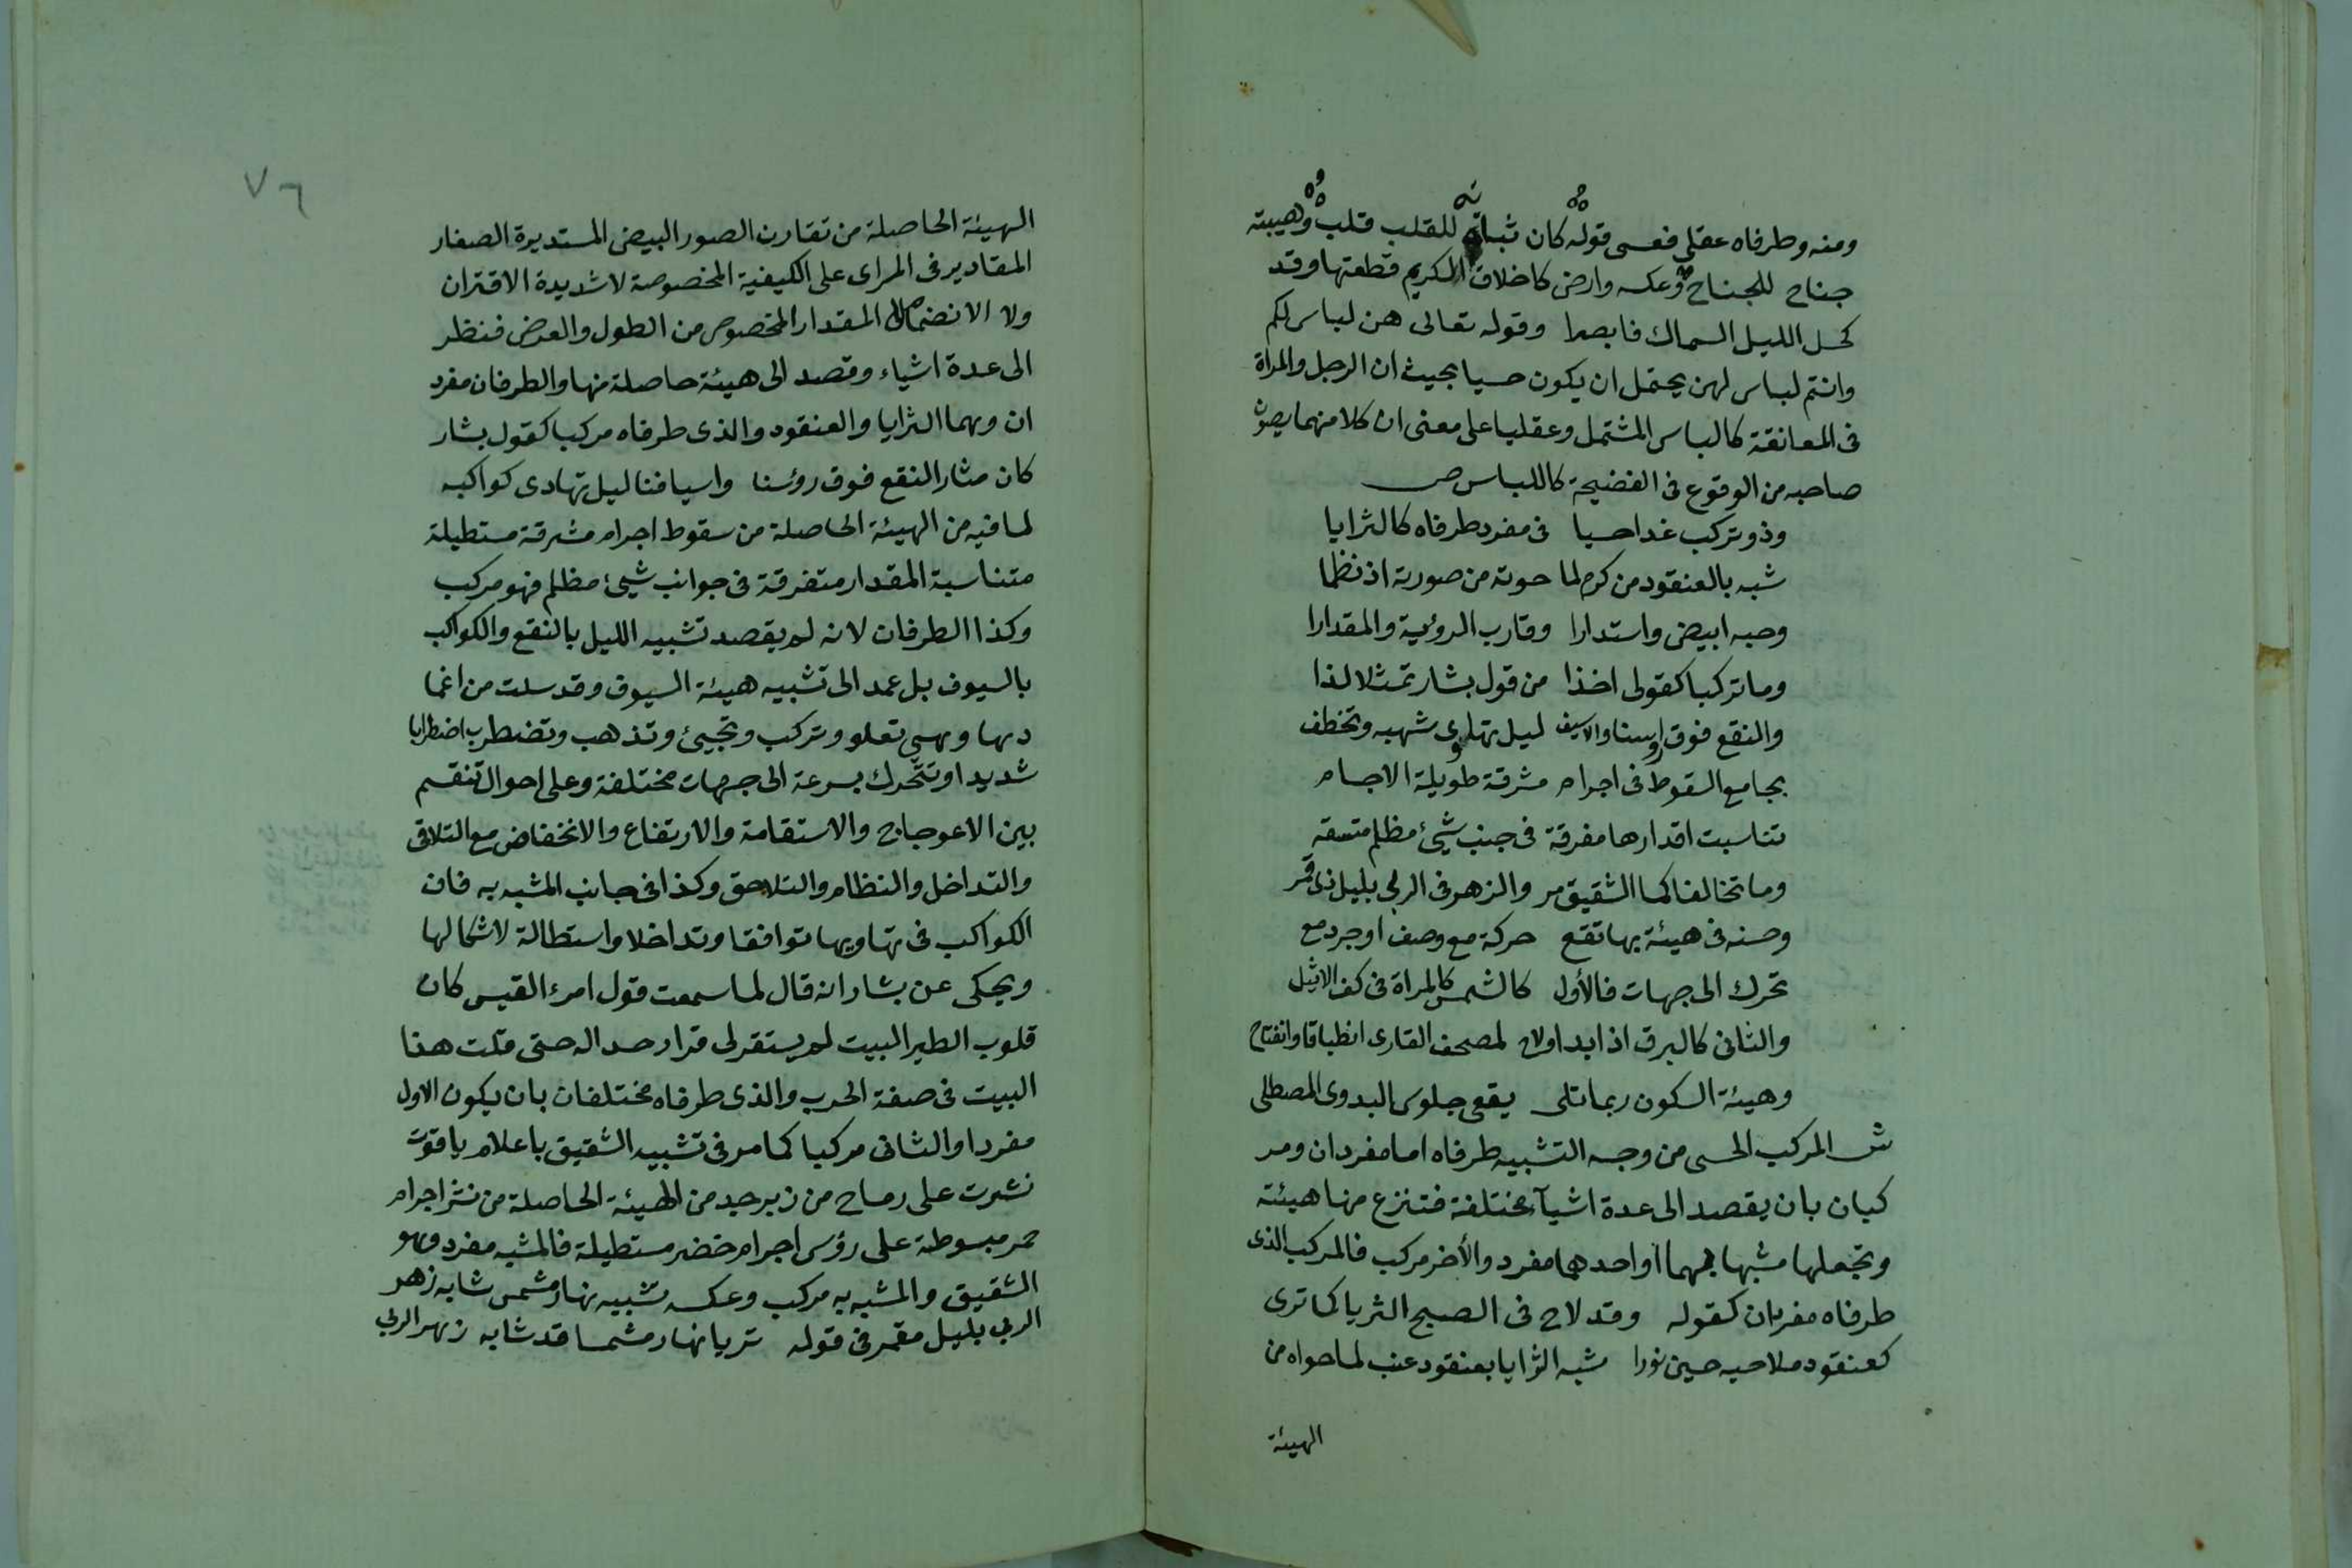 ومنه وطرفاه عقلى فعسى قوله كان ثباته للقلب قلب وهيبته
جناح للجناح وعكسه وارض كاخلاق الكريم قطعتها وقد
كحل الليل السماك فابصرا وقوله تعالى هن لباس لكم
وانتم لباس لهن يحتمل ان يكون حسيا بحيث ان الرجل والمراة
فى المعانقة كالباس المشتمل وعقليا على معنى ان كلا منهما يصون
صاحبه من الوقوع فى الفضيحة كاللباس ص
وذو تركب غدا حسيا فى مفرد طرفاه كالثرايا
شبه بالعنقود من كرم لما حوته من صورته اذ نظما
وحبه ابيض واستدارا وقارب الرؤية والمقدارا
وما تركبا كقولى اخذا من قول بشار تمثلا لذا
والنقع فوق روسنا والاسيف ليل تهاوى شهبه وتخطف
بجامع السقوط فى اجرام مشرقة طويلة الاجسام
تناسبت اقدارها مفرقة فى جنب شيئ مظلم متسقه
وما تخالفا كما الشقيق مر والزهر فى الربى بليل ذى قمر
وحسنه فى هيئة بها تقع حركة مع وصف او جرد مع
تحرك الى جهات فالأول كالشمس كالمراة فى كف الاشل
والثانى كالبرق اذا بدا ولاح لمصحف القارى انطباقا وانفتاح
وهيئة السكون ربما تلى يقعى جلوس البدوى المصطلى
ش المركب الحسى من وجه التشبيه طرفاه اما مفردان ومر
كبان بان يقصد الى عدة اشيآء مختلفة فتنزع منها هيئة
وتجعلها مشبها بهما او احدهما مفرد والأخر مركب فالمركب الذى
طرفاه مفردان كقوله وقد لاح فى الصبح الثريا كما ترى
كعنقود ملاحيه حين نورا شبه الثرايا بعنقود عنب لما حواه من
الهيئة
٧٦
الهيئة الحاصلة من تقارن الصور البيض المستديرة الصغار
المقادير فى المراى على الكيفية المخصوصة لا شديدة الاقتران
ولا الانضمام الى المقدار المخصوص من الطول والعرض فنظر
الى عدة اشياء وقصد الى هيئة حاصلة منها والطرفان مفرد
ان وهما الثرايا والعنقود والذى طرفاه مركبا كقول بشار
كان مثار النقع فوق رؤسنا واسيافنا ليل تهادى كواكبه
لما فيه من الهيئة الحاصلة من سقوط اجرام مشرقة مستطيلة
متناسبة المقدار متفرقة فى جوانب شيئ مظلم فهو مركب
وكذا الطرفان لانه لم يقصد تشبيه الليل بالنقع والكواكب
بالسيوف بل عمد الى تشبيه هيئة السيوف وقد سلت من اغما
دها وهى تعلو وتركب وتجيئ وتذهب وتضطرب اضطرابا
شديدا وتتحرك بسرعة الى جهات مختلفة وعلى احوال تنقسم
بين الاعوجاج والاستقامة والارتفاع والانخفاض مع التلاقى
والتداخل والنظام والتلاحق وكذا فى جانب المشبه به فان
الكواكب فى تهاويها توافقا وتداخلا واستطالة لاشكالها
ويحكى عن بشار انه قال لما سمعت قول امرء القيس كان
قلوب الطير البيت لم يستقر لى قرار حسدا له حتى قلت هذا
البيت فى صفة الحرب والذى طرفاه مختلفان بان يكون الاول
مفردا والثانى مركبا كما مر فى تشبيه الشقيق باعلام ياقوت
نشرت على رماح من زبرجد من الهيئة الحاصلة من نشر اجرام
حمر مبسوطة على رؤس اجرام خضر مستطيلة فالمشبه مفرد وهو
الشقيق والمشبه به مركب وعكسه تشبيه نهار مشمس شابه زهر
الربى بليل مقمر فى قوله تريا نهار مشمسا قد شابه زهر الربى